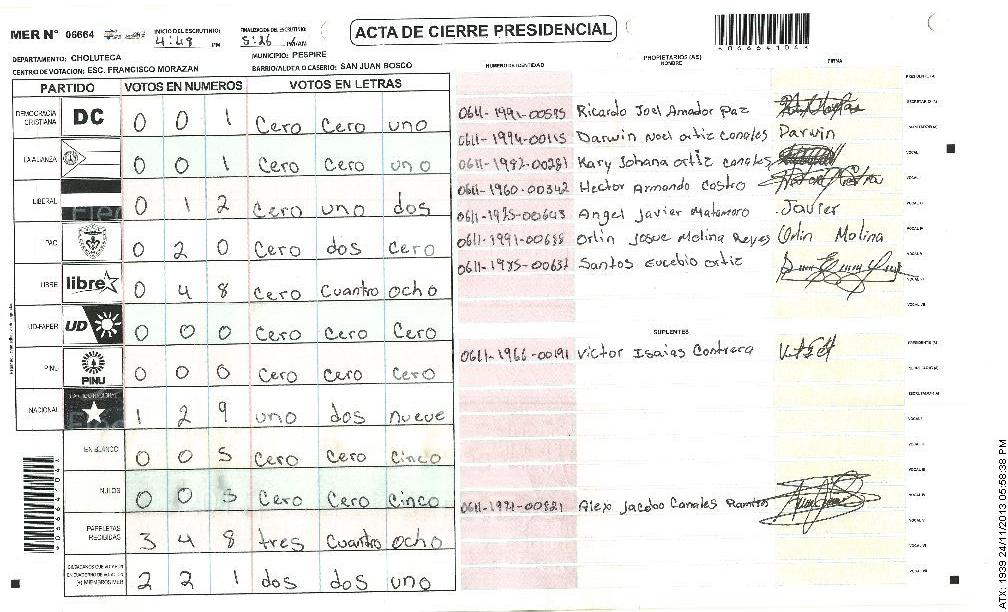 MER N° 06664 INICIO DEL ESCRUTINIO: 4:48 PM FINALIZACION DEL ESCRUTINIO: 5:26 PM/AM
ACTA DE CIERRE PRESIDENCIAL
DEPARTAMENTO: CHOLUTECA MUNICIPIO: PESPIRE
CENTRO DE VOTACION: ESC. FRANCISCO MORAZAN BARRIO/ALDEA O CASERIO: SAN JUAN BOSCO
PARTIDO VOTOS EN NUMEROS VOTOS EN LETRAS
DEMOCRACIA CRISTIANA DC 0 0 1 Cero Cero uno
LA ALIANZA 0 0 1 Cero Cero uno
LIBERAL 0 1 2 Cero uno dos
PAC 0 2 0 Cero dos Cero
LIBRE libre 0 4 8 Cero Cuantro ocho
UD-FAPER UD 0 0 0 Cero Cero Cero
PINU PINU 0 0 0 Cero Cero Cero
NACIONAL 1 2 9 uno dos nueve
EN BLANCO 0 0 5 Cero Cero Cinco
NULOS 0 0 5 Cero Cero Cinco
PAPELETAS RECIBIDAS 3 4 8 tres Cuantro ocho
2 2 1 dos dos uno
NUMERO DE IDENTIDAD PROPIETARIOS (AS) NOMBRE FIRMA
PRESIDENTE (A)
0611-1991-00595 Ricardo Joel Amador Paz SECRETARIO (A)
0611-1994-00115 Darwin Noel ortiz Canales Darwin
0611-1982-00281 Kary Johana ortiz canales VOCAL I
0611-1960-00342 Hector Armando Castro
0611-1975-00643 Angel Javier Matamoro Javier
0611-1991-00688 Orlin Josue Molina Reyes Orlin Molina
0611-1985-00637 Santos Eucebio ortiz
SUPLENTES
0611-1966-00191 Victor Isaias Contrera
0611-1991-00821 Alex Jacobo Canales Ramires
ATX: 1939 24/11/2013 05:58:38 PM